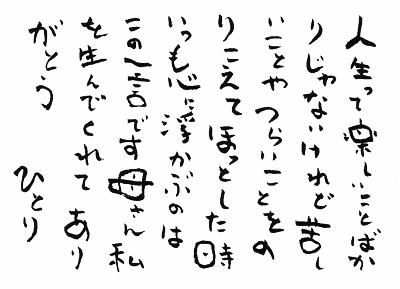 人生って楽しいことばか
りじゃないけれど苦し
いことやつらいことをの
りこえてほっとした時
いつも心に浮かぶのは
この一言です母さん私
を生んでくれてあり
がとう
ひとり